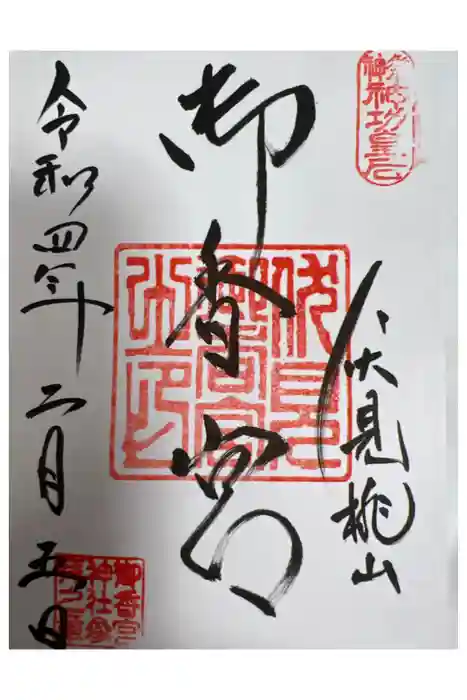 伏見桃山
御香宮
令和四年二月五日
伏見
御香宮
之印
御香宮
神社参